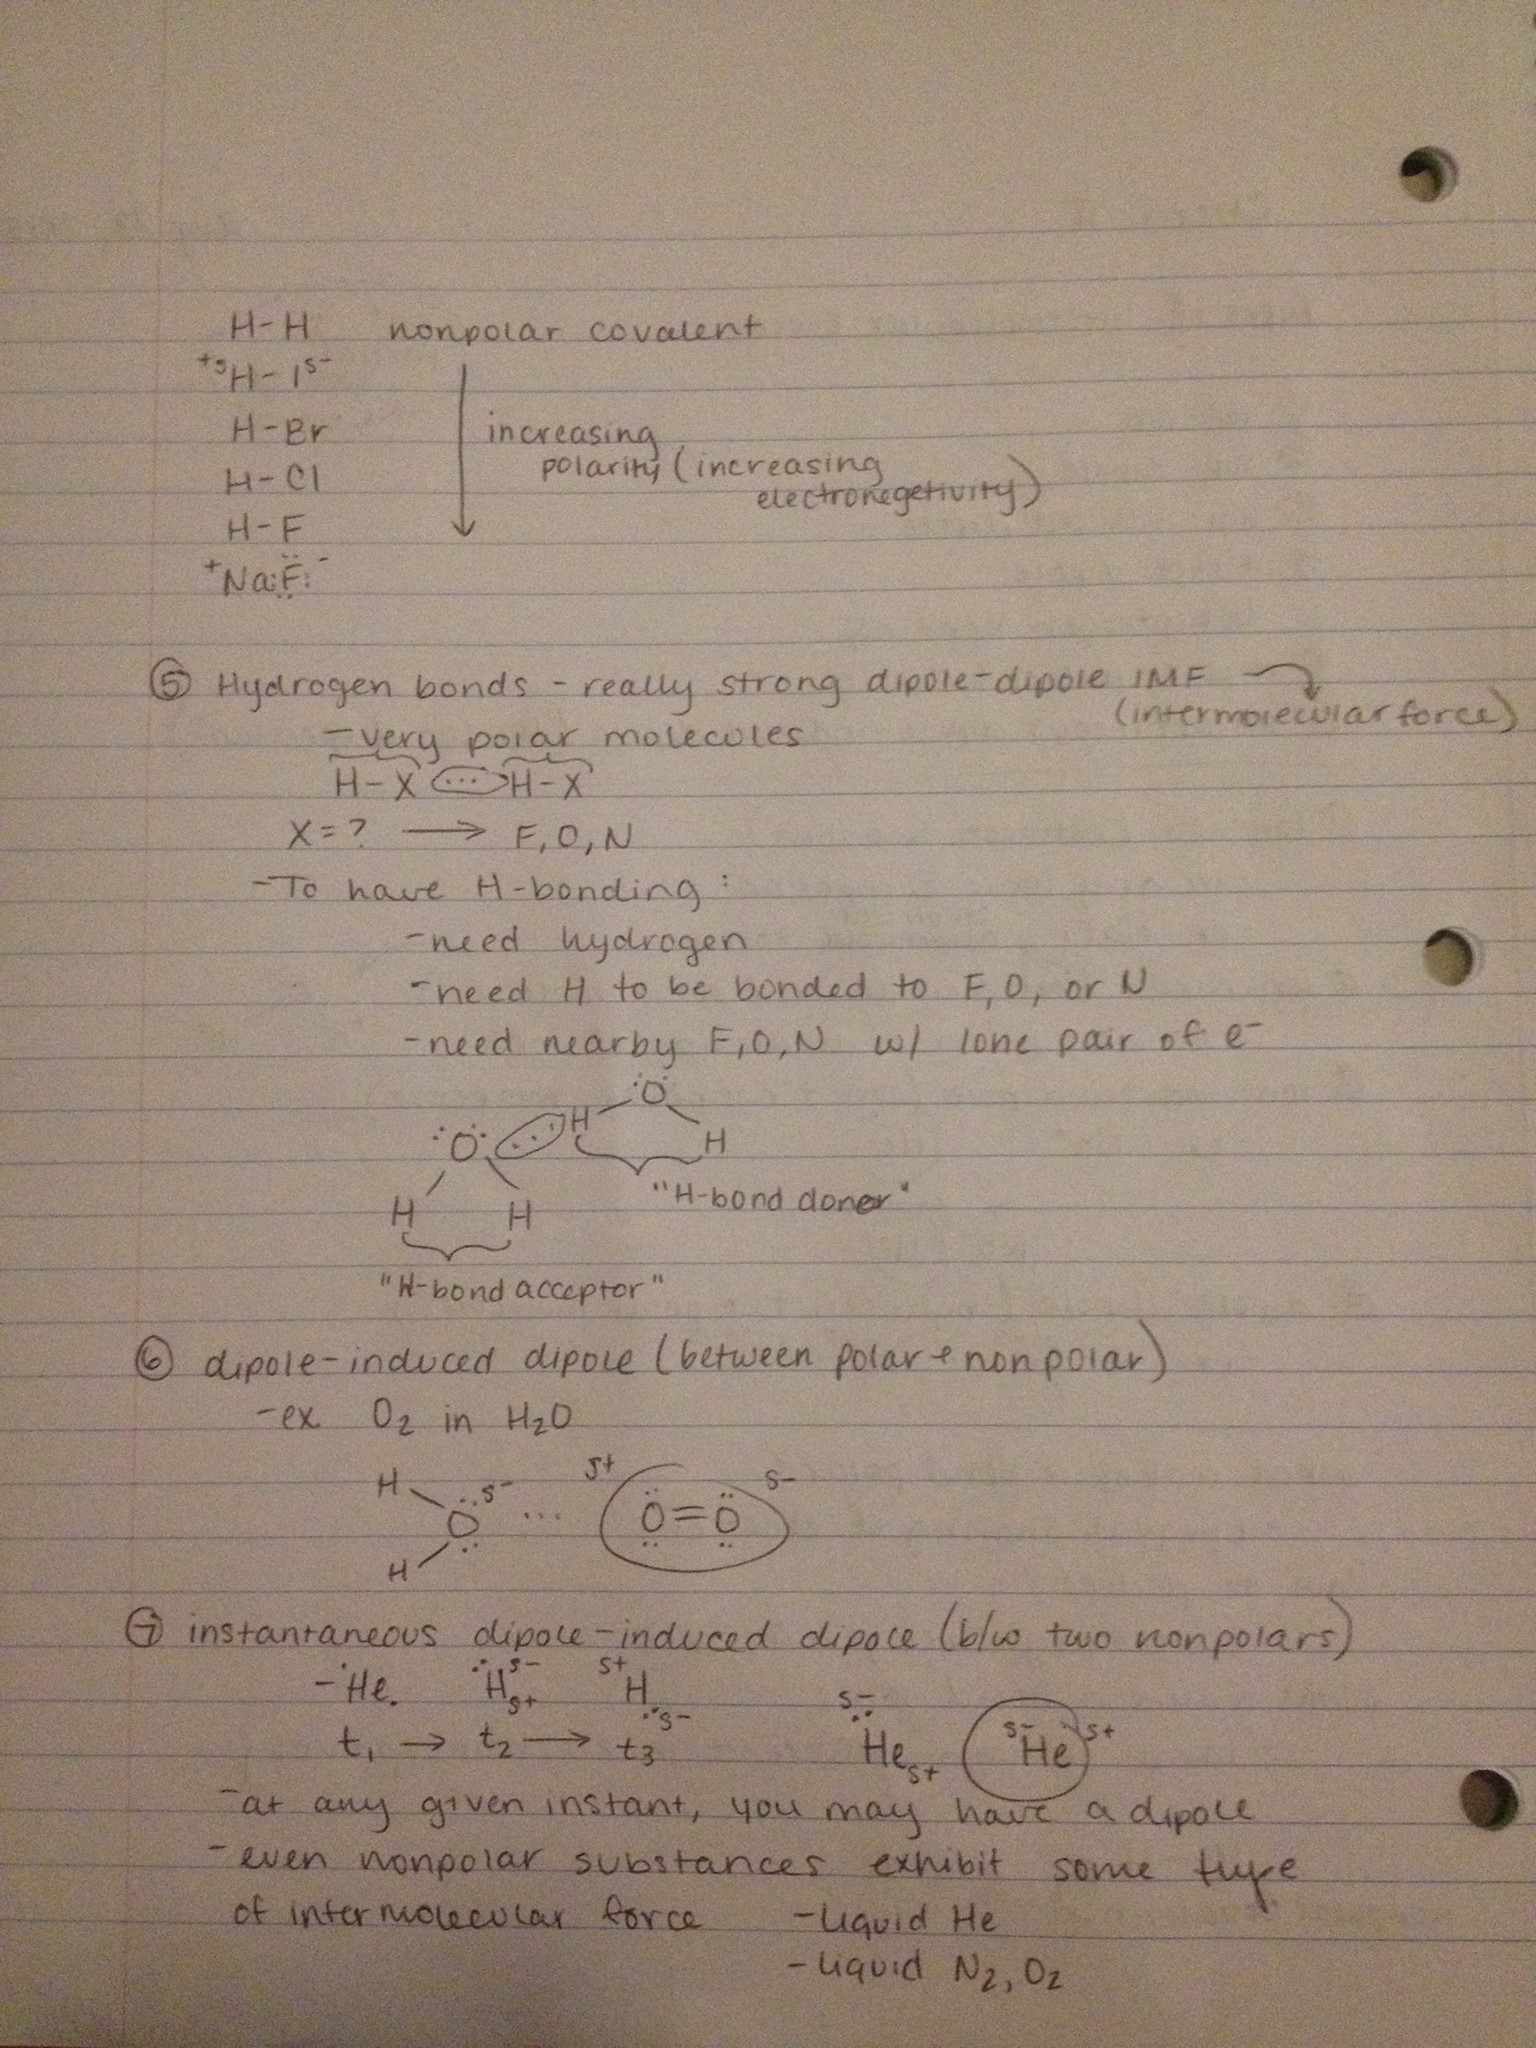 H-H nonpolar covalent
+δH-Iδ-
H-Br
increasing
H-Cl polarity (increasing
electronegetivity)
H-F
+Na:F:-
⑤ Hydrogen bonds - really strong dipole-dipole IMF
(intermolecular force)
-very polar molecules
H-X ... H-X
X=? → F, O, N
-To have H-bonding:
-need hydrogen
-need H to be bonded to F, O, or N
-need nearby F, O, N w/ lone pair of e-
:O:
H
:O: ... H
"H-bond donor"
H H
"H-bond acceptor"
⑥ dipole-induced dipole (between polar + nonpolar)
-ex. O2 in H2O
H δ+ δ-
O δ- ... O=O
H
⑦ instantaneous dipole-induced dipole (b/w two nonpolars)
-He. :Hδ-δ+ δ+H:δ- δ-:Heδ+ δ-Heδ+
t1 → t2 → t3
-at any given instant, you may have a dipole
-even nonpolar substances exhibit some type
of intermolecular force -liquid He
-liquid N2, O2